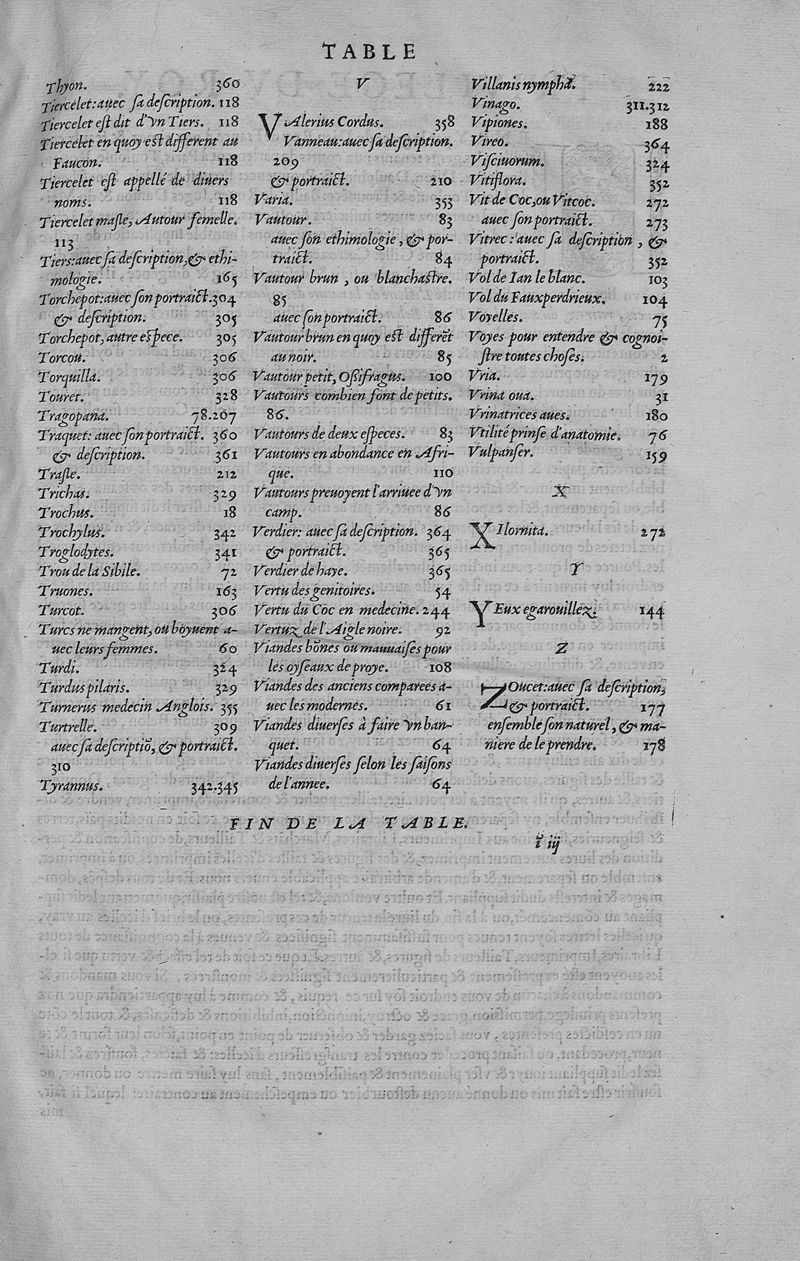 TABLE
Thyon. 360
Tiercelet: auec ſa deſcription. 118
Tiercelet eſt dit d'vn Tiers. 118
Tiercelet en quoy eſt different au
Faucon. 118
Tiercelet eſt appellé de diuers
noms. 118
Tiercelet maſle, Autour femelle.
113
Tiers: auec ſa deſcription, & ethi-
mologie. 165
Torchepot: auec ſon portraict. 304
& deſcription. 305
Torchepot, autre eſpece. 305
Torcou. 306
Torquilla. 306
Touret. 328
Tragopana. 78.207
Traquet: auec ſon portraict. 360
& deſcription. 361
Traſle. 212
Trichas. 329
Trochus. 18
Trochylus. 342
Troglodytes. 341
Trou de la Sibile. 72
Truones. 163
Turcot. 306
Turcs ne mangent, ou boyuent a-
uec leurs femmes. 60
Turdi. 324
Turdus pilaris. 329
Turnerus medecin Anglois. 355
Turtrelle. 309
auec ſa deſcriptiõ, & portraict.
310
Tyrannus. 342.345
V
VAlerius Cordus. 358
Vanneau: auec ſa deſcription.
209
& portraict. 210
Varia. 353
Vautour. 83
auec ſon ethimologie, & por-
traict. 84
Vautour brun, ou blanchaſtre.
85
auec ſon portraict. 86
Vautour brun en quoy eſt differẽt
au noir. 85
Vautour petit, Oſsifragus. 100
Vautours combien font de petits.
86.
Vautours de deux eſpeces. 83
Vautours en abondance en Afri-
que. 110
Vautours preuoyent l'arriuee d'vn
camp. 86
Verdier: auec ſa deſcription. 364
& portraict. 365
Verdier de haye. 365
Vertu des genitoires. 54
Vertu du Coc en medecine. 244
Vertuz de l'Aigle noire. 92
Viandes bõnes ou mauuaiſes pour
les oyſeaux de proye. 108
Viandes des anciens comparees a-
uec les modernes. 61
Viandes diuerſes à faire vn ban-
quet. 64
Viandes diuerſes ſelon les ſaiſons
de l'annee. 64
Villanis nympha. 222
Vinago. 311.312
Vipiones. 188
Vireo. 364
Viſciuorum. 324
Vitiflora. 352
Vit de Coc, ou Vitcoc. 272
auec ſon portraict. 273
Vitrec: auec ſa deſcription, &
portraict. 352
Vol de Ian le blanc. 103
Vol du Fauxperdrieux. 104
Voyelles. 75
Voyes pour entendre & cognoi-
ſtre toutes choſes. 2
Vria. 179
Vrina oua. 31
Vrinatrices aues. 180
Vtilité prinſe d'anatomie. 76
Vulpanſer. 159
X
XIlornita. 272
Y
YEux egarouillez. 144
Z
ZOucet: auec ſa deſcription,
& portraict. 177
enſemble ſon naturel, & ma-
niere de le prendre. 178
FIN DE LA TABLE.
ĩ iij